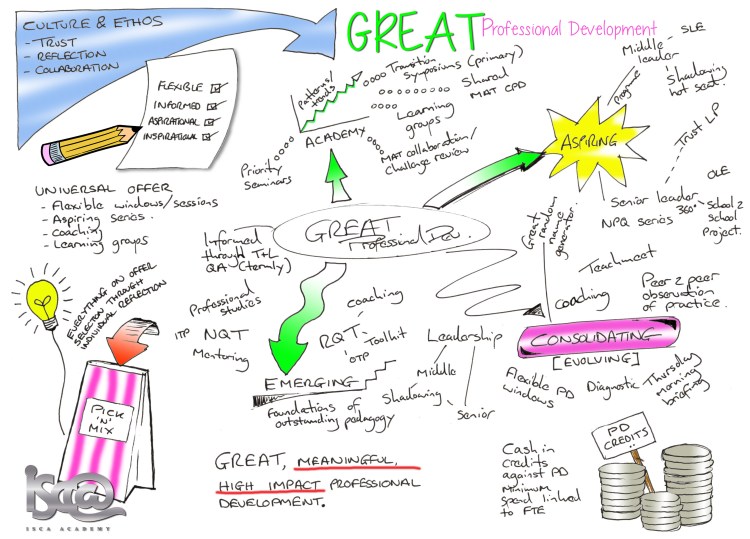 GREAT Professional Development
CULTURE & ETHOS
- TRUST
- REFLECTION
- COLLABORATION
FLEXIBLE
INFORMED
ASPIRATIONAL
INSPIRATIONAL
Patterns/
trends
ACADEMY
Transition
symposiums (primary)
Shared
MAT CPD
Learning
groups
MAT collaboration/
challenge review
Priority
Seminars
ASPIRING
Programme
Middle
leader
SLE
Shadowing
hot seat.
Trust LP
Senior leader
NPQ series
360°
OLE
School 2
School
Project.
UNIVERSAL OFFER
- Flexible windows/sessions
- Aspiring series.
- Coaching
- Learning groups
GREAT
Professional Dev.
Informed
through T+L
QA (termly)
Great
random
name
generator.
Teachmeet
Coaching
Peer 2 peer
observation
of practice.
CONSOLIDATING
[EVOLVING]
Flexible PD
windows
Diagnostic
Thursday
morning
briefing
EVERYTHING ON OFFER
SELECTION THROUGH
INDIVIDUAL REFLECTION
PICK
'N'
MIX
Professional
studies
ITP
NQT
Mentoring
RQT
Coaching
Toolkit
OTP
EMERGING
Foundations of
outstanding pedagogy
Shadowing
Leadership
Middle
Senior
GREAT, MEANINGFUL,
HIGH IMPACT PROFESSIONAL
DEVELOPMENT.
Cash in
credits
against PD
Minimum
spend linked
to FTE
PD
CREDITS
isca
ISCA ACADEMY